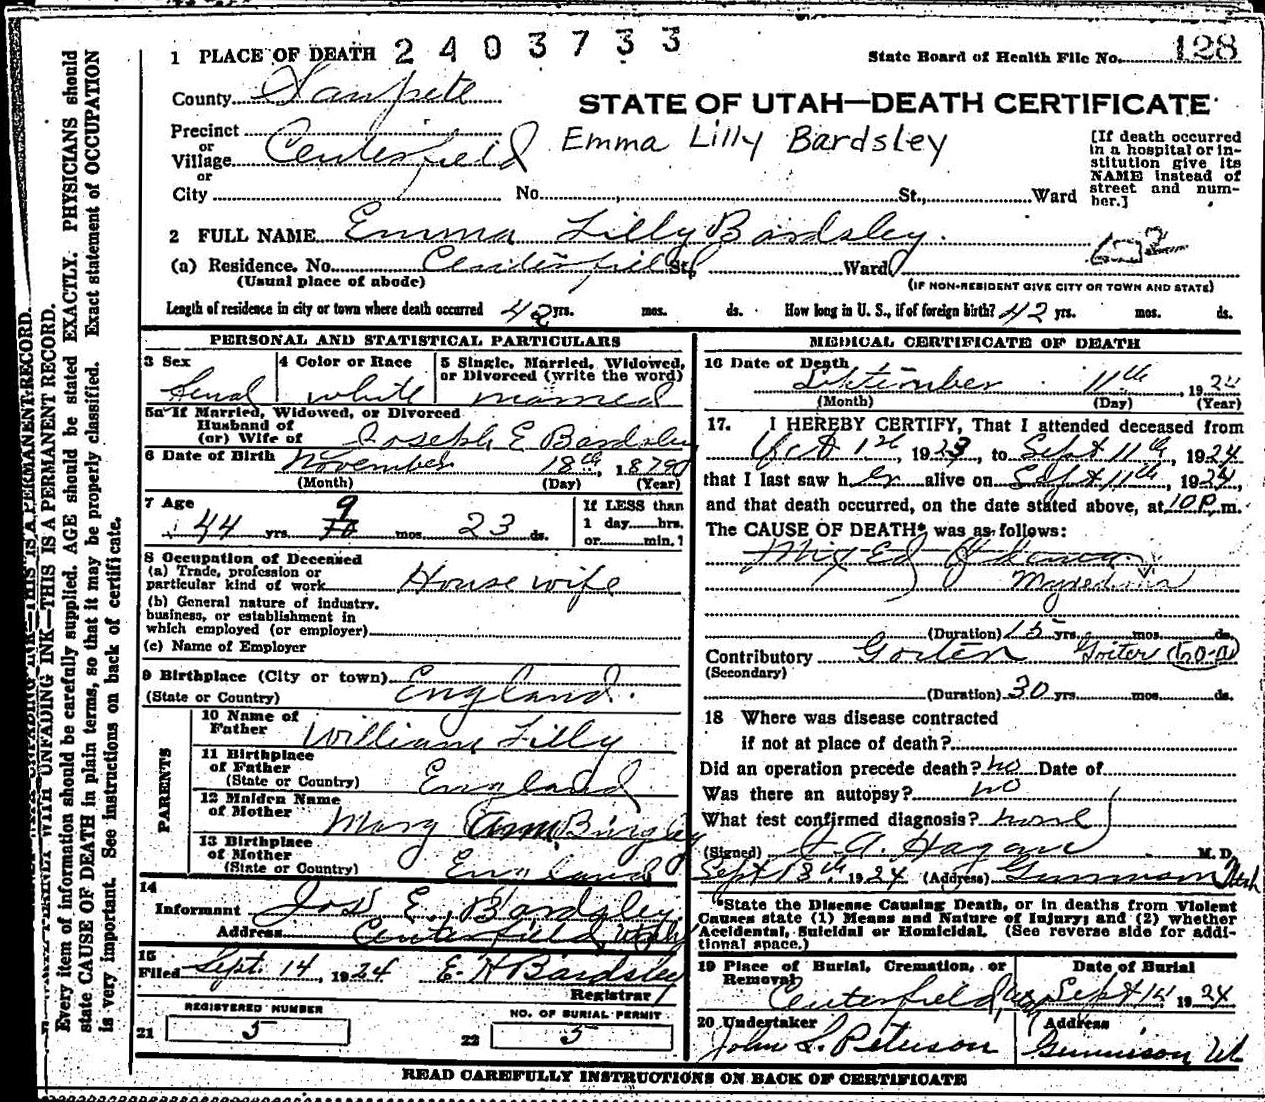 1 PLACE OF DEATH 2403733 State Board of Health File No. 128
County Sanpete
STATE OF UTAH—DEATH CERTIFICATE
Precinct
or
Village Centerfield
or
City
Emma Lilly Bardsley
[If death occurred
in a hospital or in-
stitution give its
NAME instead of
street and num-
ber.]
No. St., Ward
2 FULL NAME Emma Lilly Bardsley.
(a) Residence. No. Centerfield St., Ward
(Usual place of abode) (IF NON-RESIDENT GIVE CITY OR TOWN AND STATE)
Length of residence in city or town where death occurred 42 yrs. mos. ds. How long in U. S., if of foreign birth? 42 yrs. mos. ds.
PERSONAL AND STATISTICAL PARTICULARS
3 Sex 4 Color or Race 5 Single, Married, Widowed,
or Divorced (write the word)
white married
5a If Married, Widowed, or Divorced
Husband of
(or) Wife of Joseph E Bardsley
6 Date of Birth November 18th, 1879
(Month) (Day) (Year)
7 Age If LESS than
44 yrs. 9 mos. 23 ds. 1 day hrs.
or min.?
8 Occupation of Deceased
(a) Trade, profession or
particular kind of work House wife
(b) General nature of industry,
business, or establishment in
which employed (or employer)
(c) Name of Employer
9 Birthplace (City or town) England.
(State or Country)
PARENTS
10 Name of
Father William Lilly
11 Birthplace
of Father England
(State or Country)
12 Maiden Name
of Mother Mary Ann
13 Birthplace
of Mother England
(State or Country)
14
Informant Jos E. Bardsley
Address Centerfield, Utah
15
Filed Sept. 14, 1924 E. H Bardsley
Registrar
REGISTERED NUMBER NO. OF BURIAL PERMIT
21 5 22 5
MEDICAL CERTIFICATE OF DEATH
16 Date of Death
September 11th, 1924
(Month) (Day) (Year)
17. I HEREBY CERTIFY, That I attended deceased from
Oct 1st, 1923, to Sept 11th, 1924
that I last saw her alive on Sept 11th, 1924,
and that death occurred, on the date stated above, at 10 P. m.
The CAUSE OF DEATH* was as follows:
Myxedema
(Duration) 15 yrs. mos. ds.
Contributory Goiter Goiter
(Secondary)
(Duration) 30 yrs. mos. ds.
18 Where was disease contracted
if not at place of death?
Did an operation precede death? no Date of
Was there an autopsy? no
What test confirmed diagnosis? none
(Signed) A. Hagan M. D.
Sept 13th 1924 (Address) Gunnison Utah
*State the Disease Causing Death, or in deaths from Violent
Causes state (1) Means and Nature of Injury; and (2) whether
Accidental, Suicidal or Homicidal. (See reverse side for addi-
tional space.)
19 Place of Burial, Cremation, or
Removal
Date of Burial
Centerfield, Sept 14 1924
20 Undertaker Address
John L. Peterson Gunnison Ut
READ CAREFULLY INSTRUCTIONS ON BACK OF CERTIFICATE
WITH UNFADING INK—THIS IS A PERMANENT RECORD.
Every item of information should be carefully supplied. AGE should be stated EXACTLY. PHYSICIANS should
state CAUSE OF DEATH in plain terms, so that it may be properly classified. Exact statement of OCCUPATION
is very important. See instructions on back of certificate.